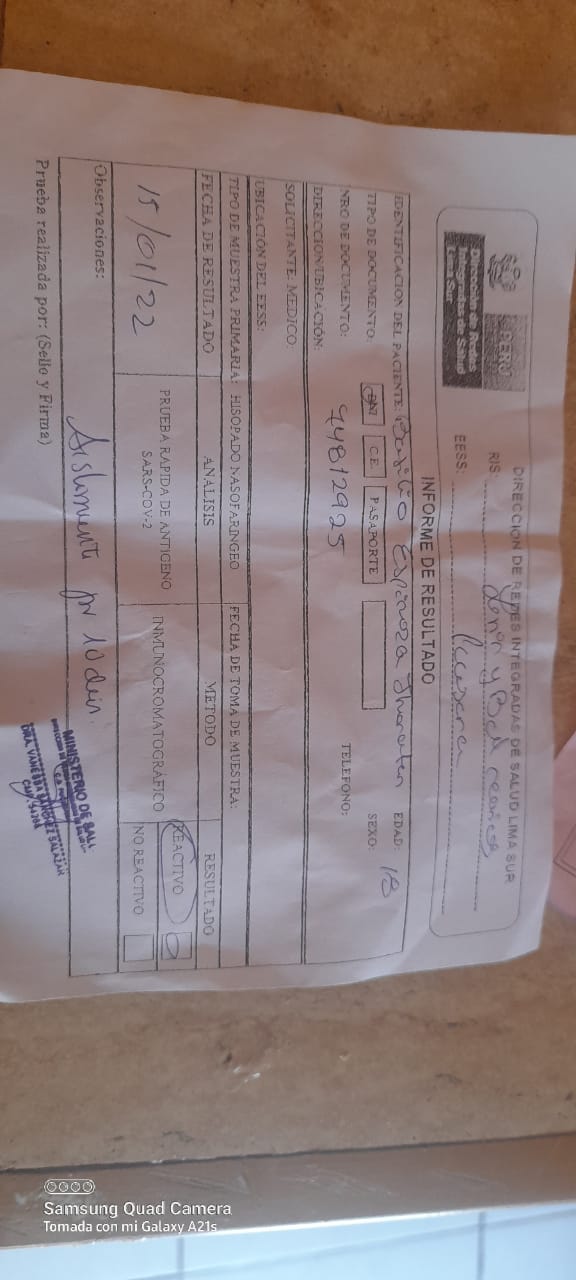 PERÚ
Dirección de Redes
Integradas de Salud
Lima Sur
DIRECCION DE REDES INTEGRADAS DE SALUD LIMA SUR
RIS:
EESS:
INFORME DE RESULTADO
IDENTIFICACION DEL PACIENTE: Basilio Espinoza Jhonatan EDAD: 18
TIPO DE DOCUMENTO: DNI C.E. PASAPORTE SEXO:
NRO DE DOCUMENTO: 74812925 TELEFONO:
DIRECCION/UBICACIÓN:
SOLICITANTE: MEDICO:
UBICACIÓN DEL EESS:
TIPO DE MUESTRA PRIMARIA: HISOPADO NASOFARINGEO FECHA DE TOMA DE MUESTRA:
FECHA DE RESULTADO ANALISIS METODO RESULTADO
15/01/22 PRUEBA RAPIDA DE ANTIGENO SARS-COV-2 INMUNOCROMATOGRÁFICO REACTIVO
NO REACTIVO
Observaciones: Aislamiento por 10 dias.
Prueba realizada por: (Sello y Firma)
MINISTERIO DE SALU
DRA. VANESSA SANCHEZ SALAZAR
Samsung Quad Camera
Tomada con mi Galaxy A21s